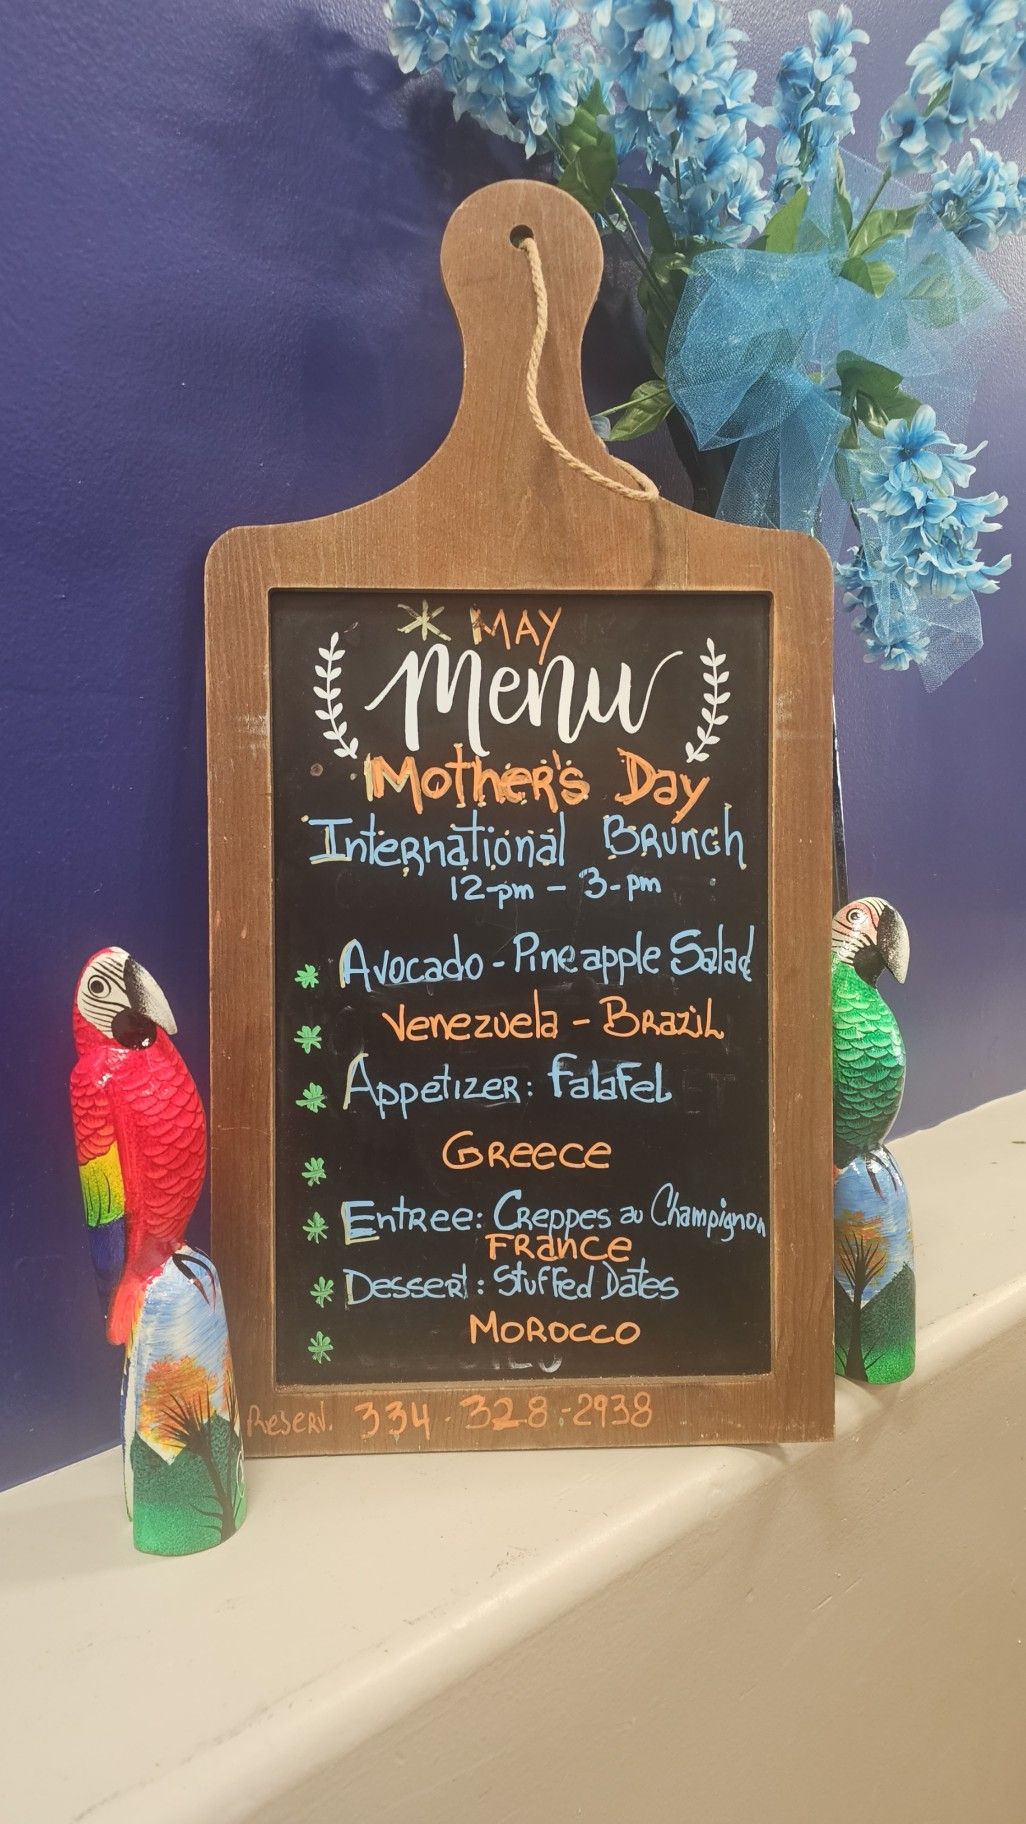 MAY
Menu
Mother's Day
International Brunch
12-pm - 3-pm
Avocado - Pineapple Salad
Venezuela - Brazil
Appetizer: Falafel
Greece
Entree: Creppes au Champignon
France
Dessert: Stuffed Dates
Morocco
Reserv. 334-328-2938